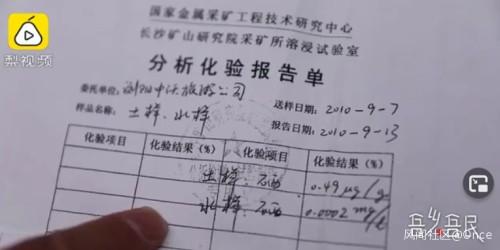 梨视频
国家金属采矿工程技术研究中心
长沙矿山研究院采矿所溶浸试验室
分析化验报告单
委托单位：浏阳中沃旅游公司 送样日期：2010-9-7
样品名称：土样、水样 报告日期：2010-9-13
化验项目 化验结果（%） 化验项目 化验结果（%）
土样：石西 0.49 μg/g
水样：石西 0.0002 mg/L
风闻社区@Once